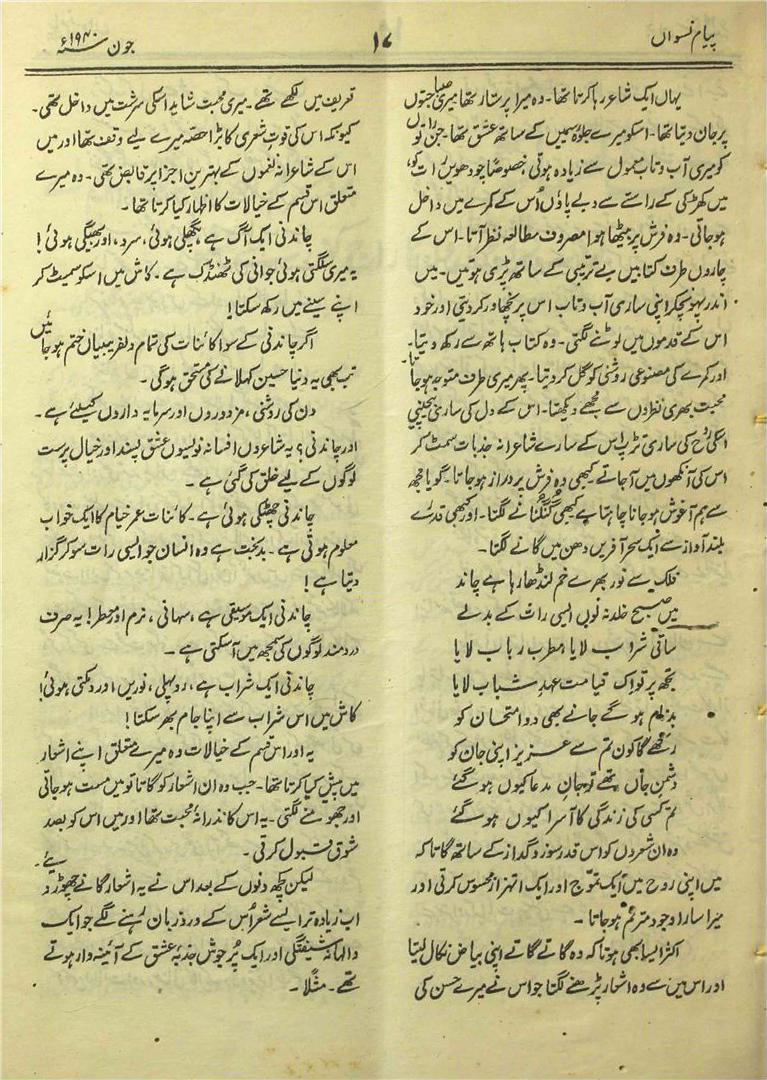 پیام نسواں
۱۷
جون سنہ ۱۹۴۰ء
یہاں ایک شاعر رہا کرتا تھا۔ وہ میرا پرستار تھا میری صباحتوں
پر جان دیتا تھا۔ اسکو میرے جلوۂ سیمیں کے ساتھ عشق تھا۔ جن راتوں
کو میری آب و تاب معمول سے زیادہ ہوتی خصوصاً چودھویں رات کو،
میں کھڑکی کے راستے سے دبے پاؤں اُس کے کمرے میں داخل
ہو جاتی۔ وہ فرش پر بیٹھا ہوا مصروف مطالعہ نظر آتا۔ اس کے
چاروں طرف کتابیں بے ترتیبی کے ساتھ پڑی ہوتیں۔ میں
اندر پہونچکر اپنی ساری آب و تاب اس پر نچھاور کر دیتی اور خود
اس کے قدموں میں لوٹنے لگتی۔ وہ کتاب ہاتھ سے رکھ دیتا۔
اور کمرے کی مصنوعی روشنی کو گل کر دیتا۔ پھر میری طرف متوجہ ہو جاتا۔
محبت بھری نظروں سے مجھے دیکھتا۔ اس کے دل کی ساری بےچینی
اسکی روح کی ساری تڑپ اس کے سارے شاعرانہ جذبات سمٹ کر
اس کی آنکھوں میں آ جاتے کبھی وہ فرش پر دراز ہو جاتا۔ گویا مجھ
سے ہم آغوش ہو جانا چاہتا ہے کبھی گنگنانے لگتا۔ اور کبھی قدرے
بلند آواز سے ایک سحر آفریں دھن میں گانے لگتا۔
فلک سے نور بھرے خم لنڈھا رہا ہے چاند
میں صبح خلد نہ لوں ایسی رات کے بدلے
ساقی شراب لایا مطرب رباب لایا
تجھ پر تو اک قیامت عہدِ شباب لایا
بدنام ہو گے جانے بھی دو امتحان کو
رکھے گا کون تم سے عزیز اپنی جان کو
دشمنِ جاں تھے تو جانِ مدعا کیوں ہو گئے
تم کسی کی زندگی کا آسرا کیوں ہو گئے
وہ ان شعروں کو اس قدر سوز و گداز کے ساتھ گاتا کہ
میں اپنی روح میں ایک تموّج اور ایک اہتزاز محسوس کرتی اور
میرا سارا وجود مترنم ہو جاتا۔
اکثر ایسا بھی ہوتا کہ وہ گاتے گاتے اپنی بیاض نکال لیتا
اور اس میں سے وہ اشعار پڑھنے لگتا جو اس نے میرے حسن کی
تعریف میں لکھے تھے۔ میری محبت شاید اسکی سرشت میں داخل تھی۔
کیونکہ اس کی قوتِ شعری کا بڑا حصّہ میرے لیے وقف تھا اور میں
اس کے شاعرانہ نغموں کے بہترین اجزا پر قابض تھی۔ وہ میرے
متعلق اس قسم کے خیالات کا اظہار کیا کرتا تھا۔
چاندنی ایک آگ ہے، پگھلی ہوئی، سرد، اور بھیگی ہوئی!
یہ میری سلگتی ہوئی جوانی کی ٹھنڈک ہے۔ کاش میں اسکو سمیٹ کر
اپنے سینے میں رکھ سکتا!
اگر چاندنی کے سوا کائنات کی تمام دلفریبیاں ختم ہو جائیں
تب بھی یہ دنیا حسین کہلانے کی مستحق ہوگی۔
دن کی روشنی، مزدوروں اور سرمایہ داروں کیلئے ہے۔
اور چاندنی؟ یہ شاعروں افسانہ نویسوں عشق پسند اور خیال پرست
لوگوں کے لیے خلق کی گئی ہے۔
چاندنی چھٹکی ہوئی ہے۔ کائنات عمر خیام کا ایک خواب
معلوم ہوتی ہے۔ بدبخت ہے وہ انسان جو ایسی رات سو کر گزار
دیتا ہے!
چاندنی ایک موسیقی ہے، سہانی، نرم اور معطر! یہ صرف
دردمند لوگوں کی سمجھ میں آ سکتی ہے۔
چاندنی ایک شراب ہے، روپہلی، نوریں اور دمکتی ہوئی!
کاش میں اس شراب سے اپنا جام بھر سکتا!
یہ اور اس قسم کے خیالات وہ میرے متعلق اپنے اشعار
میں پیش کیا کرتا تھا۔ جب وہ ان اشعار کو گاتا تو میں مست ہو جاتی
اور جھومنے لگتی۔ یہ اس کا نذرانۂ محبت تھا اور میں اس کو بصد
شوق قبول کرتی۔
لیکن کچھ دنوں کے بعد اس نے یہ اشعار گانے چھوڑ دیئے۔
اب زیادہ تر ایسے شعر اُس کے ورد زبان رہنے لگے جو ایک
والہانہ شیفتگی اور ایک پُر جوش جذبۂ عشق کے آئینہ دار ہوتے
تھے۔ مثلاً۔